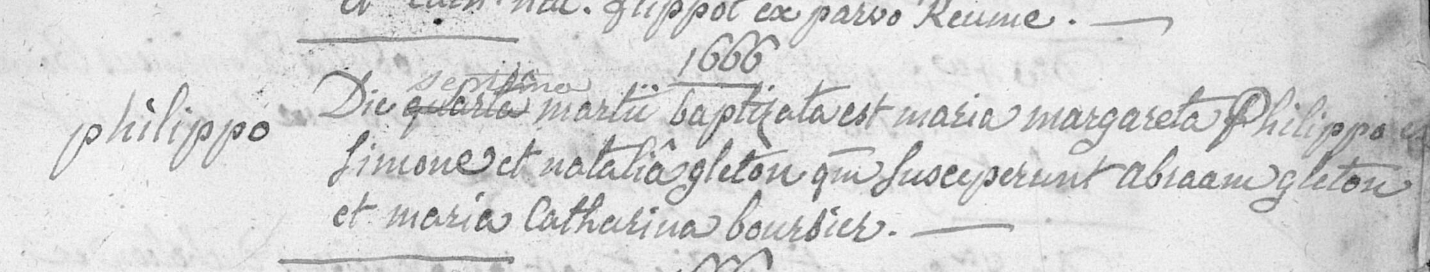 et Cath. nat. flippot ex parvo Reume. —
1666
septima
philippo
Die quarta martii baptizata est maria margareta Philippo ex
Simone et nataliâ gleton qm̄ susceperunt abraam gleton
et maria Catharina boursier. —
1666